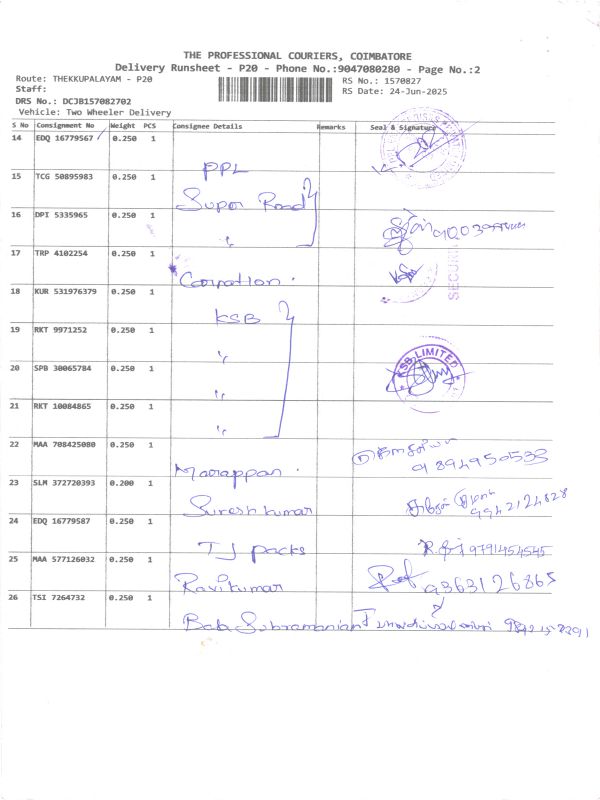 THE PROFESSIONAL COURIERS, COIMBATORE
Delivery Runsheet - P20 - Phone No.:9047080280 - Page No.:2
Route: THEKKUPALAYAM - P20 RS No.: 1570827
Staff: RS Date: 24-Jun-2025
DRS No.: DCJB157082702
Vehicle: Two Wheeler Delivery
S No Consignment No Weight PCS Consignee Details Remarks Seal & Signature
14 EDQ 16779567 0.250 1 PPL
15 TCG 50895983 0.250 1 Super Road
16 DPI 5335965 0.250 1 "
17 TRP 4102254 0.250 1 SECURI
18 KUR 531976379 0.250 1 KSB
19 RKT 9971252 0.250 1 "
20 SPB 30065784 0.250 1 " KSB LIMITED
21 RKT 10084865 0.250 1 "
22 MAA 708425080 0.250 1 Marappan. 894950533
23 SLM 372720393 0.200 1 Suresh kumar 9942124828
24 EDQ 16779587 0.250 1 TJ packs 9791454545
25 MAA 577126032 0.250 1 Ravikumar 9363126865
26 TSI 7264732 0.250 1 Bala Subramanian